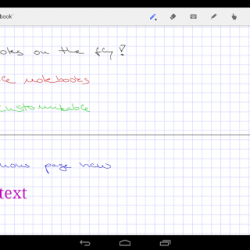 book
otes on the fly!
notebooks
customizable
page view
text